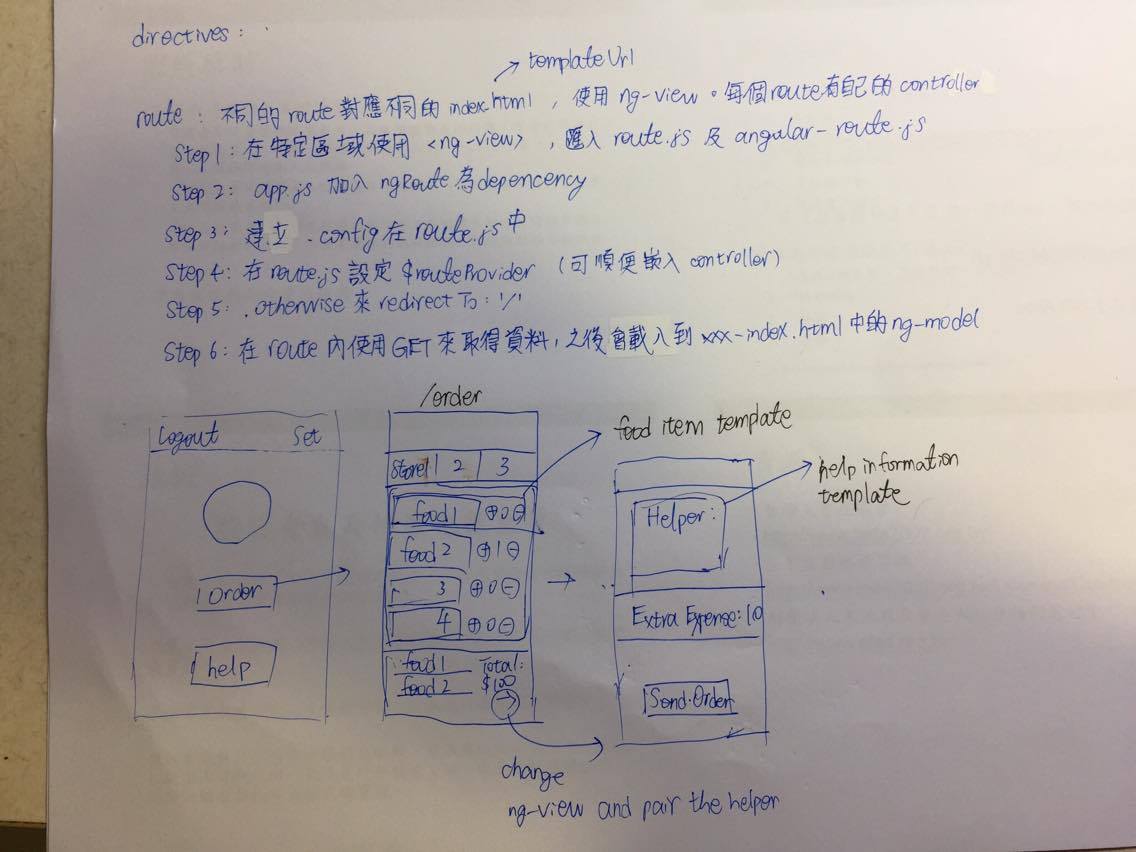 directives :
templateUrl
route : 不同的 route 對應不同的 index.html , 使用 ng-view 。每個route有自己的 controller
Step 1 : 在特定區域使用 <ng-view> , 匯入 route.js 及 angular-route.js
Step 2 : app.js 加入 ngRoute 為depencency
Step 3 : 建立 .config 在 route.js 中
Step 4 : 在 route.js 設定 $routeProvider (可順便嵌入 controller)
Step 5 : .otherwise 來 redirectTo : '/'
Step 6 : 在 route 內使用GET來取得資料, 之後會載入到 xxx-index.html 中的 ng-model
/order
Logout Set
Order
help
Store1 2 3
food 1 ⊕ 0 ⊖
food 2 ⊕ 1 ⊖
3 ⊕ 0 ⊖
4 ⊕ 0 ⊖
food 1 Total:
food 2 $100
→
food item template
help information
template
Helper:
Extra Expense: 10
Send Order
change
ng-view and pair the helper